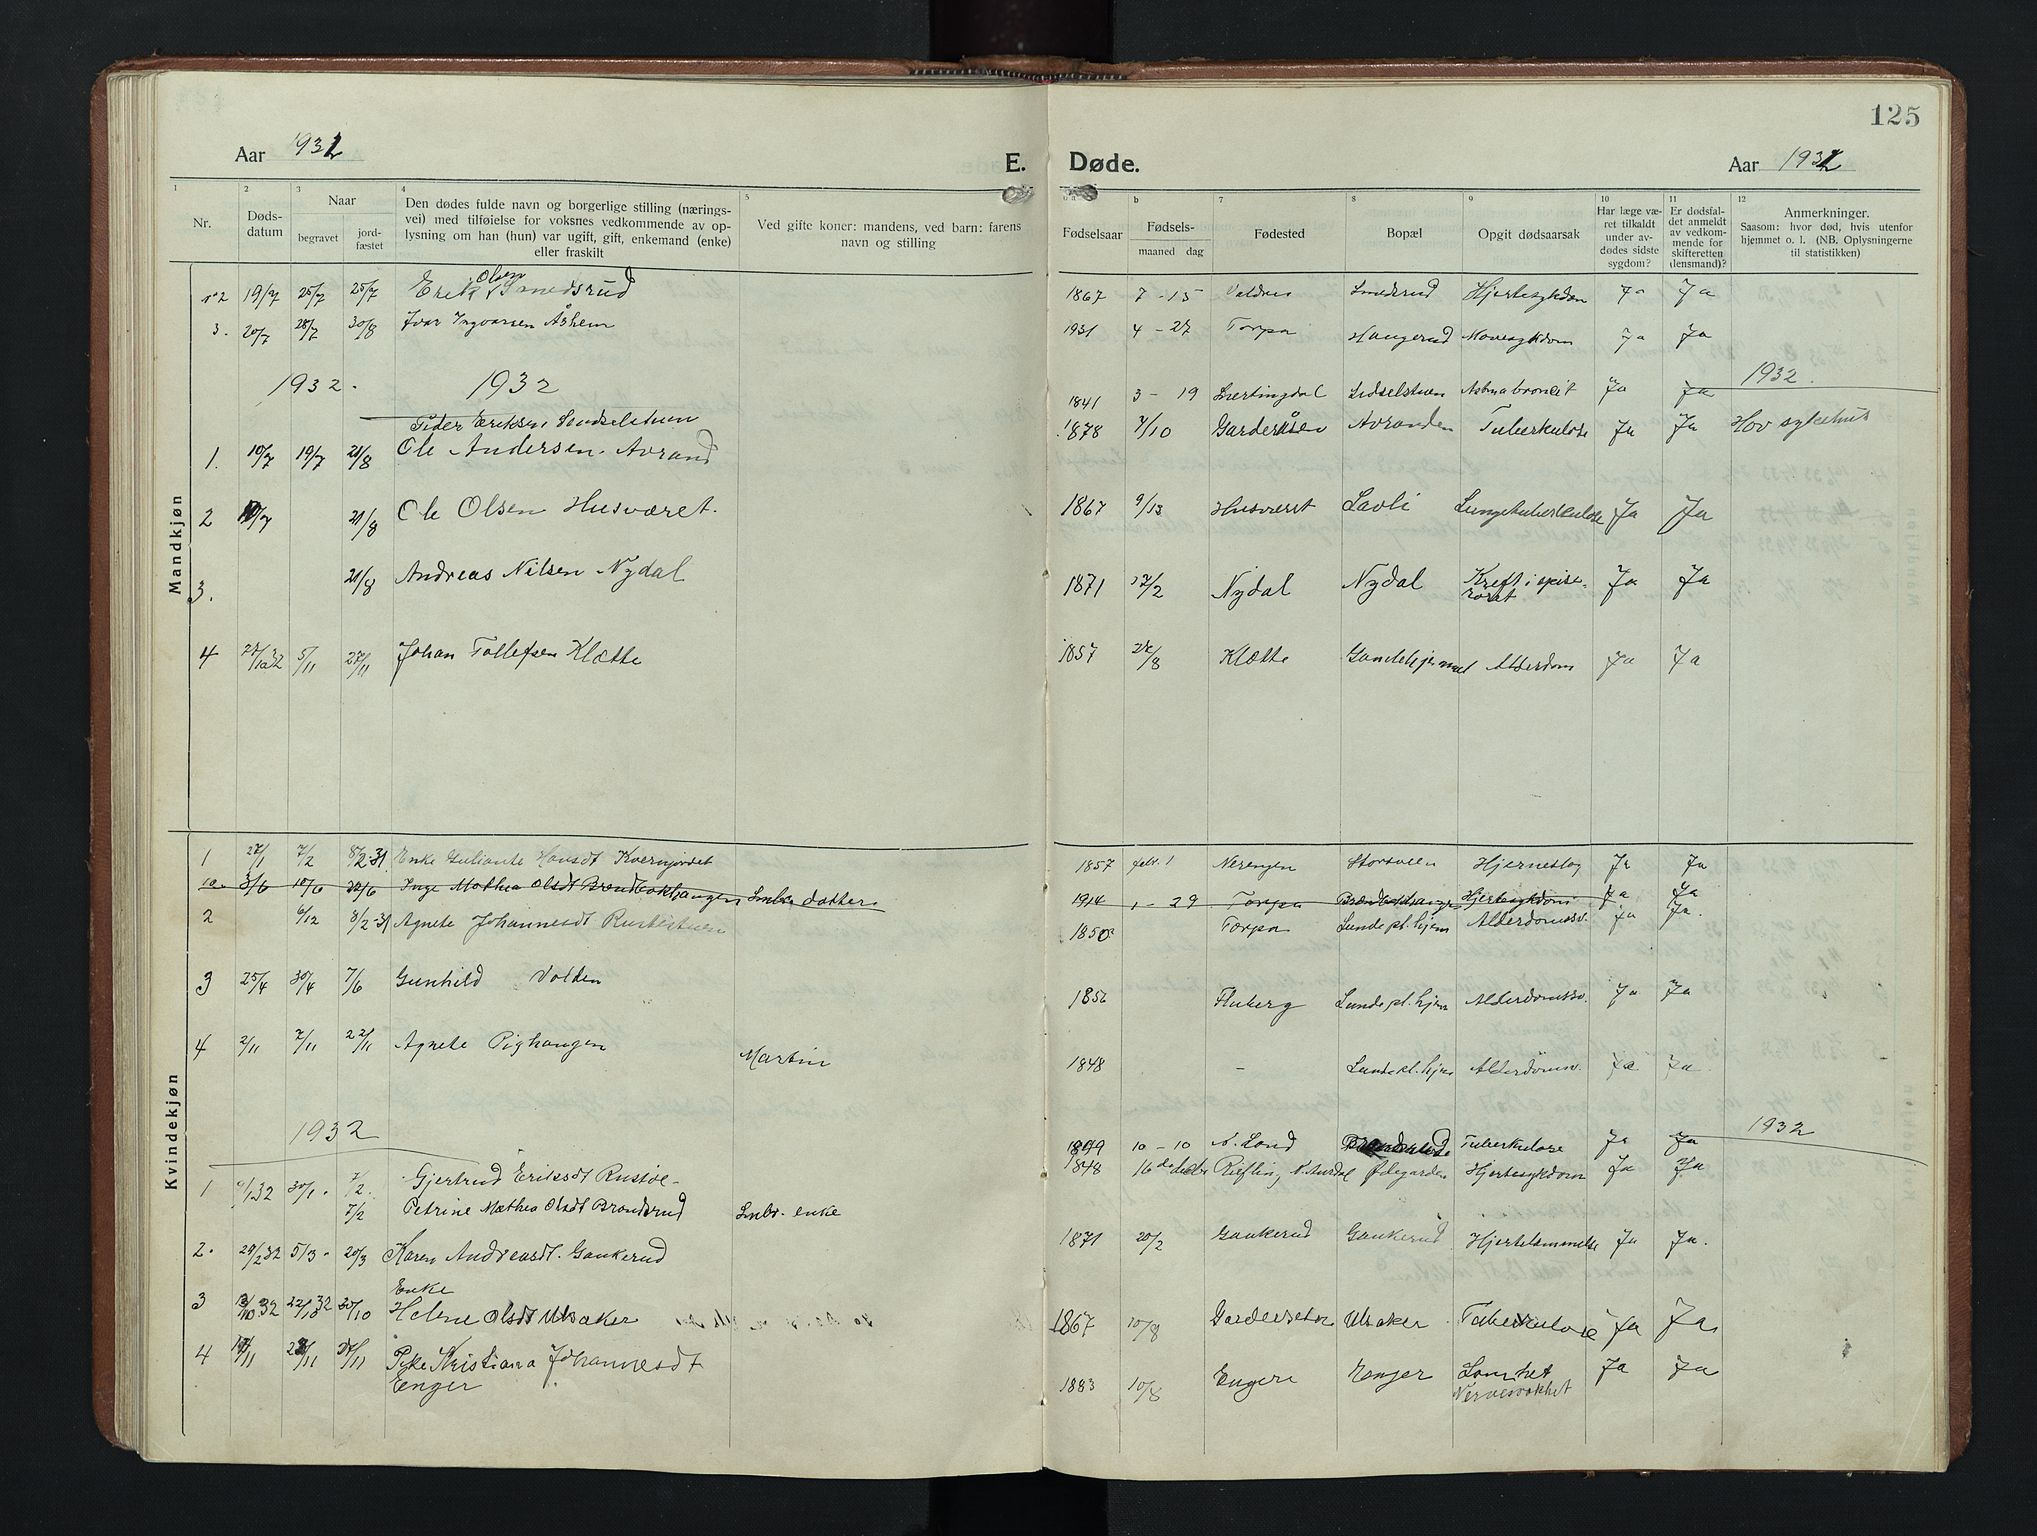 125
Aar 1931 E. Døde. Aar 1931
1 2 3 4 5 b 7 8 9 10 11 12
Nr.
Døds-
datum
Naar
begravet
jord-
fæstet
Den dødes fulde navn og borgerlige stilling (nærings-
vei) med tilføielse for voksnes vedkommende av op-
lysning om han (hun) var ugift, gift, enkemand (enke)
eller fraskilt
Ved gifte koner: mandens, ved barn: farens
navn og stilling
Fødselsaar
Fødsels-
maaned dag
Fødested
Bopæl
Opgit dødsaarsak
Har læge væ-
ret tilkaldt
under av-
dødes sidste
sygdom?
Er dødsfal-
det anmeldt
av vedkom-
mende for
skifteretten
(lensmand)?
Anmerkninger.
Saasom: hvor død, hvis utenfor
hjemmet o. l. (NB. Oplysningerne
til statistikken)
Mandkjøn
2 19/7 25/7 25/7 Erik Olsen Smedsrud 1867 7-15 Valdres Smedsrud Hjertesykdom Ja Ja
3. 20/7 28/7 30/8 Ivar Ingvarsen Åshem 1931 4-27 Torpa Haugerud Mavesykdom Ja Ja
1932. 1932 1932.
Peder Eriksen 1841 3-19 Snertingdal Astmabronkit Ja Ja
1. 10/7 19/7 21/8 Ole Andersen Avrand 1878 7/10 Garderåsen Avranden Tuberkulose Ja Ja Hov sykehus
2 21/8 Ole Olsen Husværet. 1867 9/13 Husværet Lavli Lungetuberkulose Ja Ja
3. 21/8 Andreas Nilsen Nydal 1871 17/2 Nydal Nydal Kreft i spise-
røret Ja Ja
4 27/10 32 5/11 27/11 Johan Tollefsen Klætte 1857 24/8 Klætte Gamlehjemmet Alderdom Ja Ja
Kvindekjøn
1 27/1 7/2 8/2-31 Enke Guliante Hansdt Kvernjordet 1857 febr. 1 Nerengen Storsveen Hjerneslag Ja Ja
10. 3/6 10/6 22/6 Inga Mathea Olsdt Smbr. datter 1914 1-29 Torpa Hjertesykdom Ja Ja
2 6/12 8/2-31 Agnete Johannesdt Rustestuen 1850 Torpa Lunde pl. hjem Alderdomssv. Ja Ja.
3 25/4 30/4 7/6 Gunhild Volden 1856 Fluberg Lunde pl. hjem Alderdomssv. Ja Ja
4 2/11 7/11 22/11 Agnete Pighaugen Martin 1848 - Lunde pl. hjem Alderdomsv. Ja Ja
1932 1932
1 30/1. 7/2. Gjertrud Eriksdt Rustøe- 1849 10-10 N. Land Tuberkulose Ja Ja
7/2 Petrine Mathea Olsdt Brandsrud Smbr. enke 1848 Øiegarden Hjertesykdom Ja Ja
2. 29/2 32 5/3. 20/3 Karen Andreasdt. Gaukerud 1871 20/2 Gaukerud Gaukerud Hjertelammelse Ja Ja.
Enke
3 13/10 32 22/10 32 30/10 Helene Olsdt Ulsaker 1867 10/8 Ulsaker Tuberkulose Ja Ja
4 17/11 27/11 Pike Kristiana Johannesdt
Enger 1883 10/8 Engeri Enger Lamhet
Nervesvakhet Ja Ja